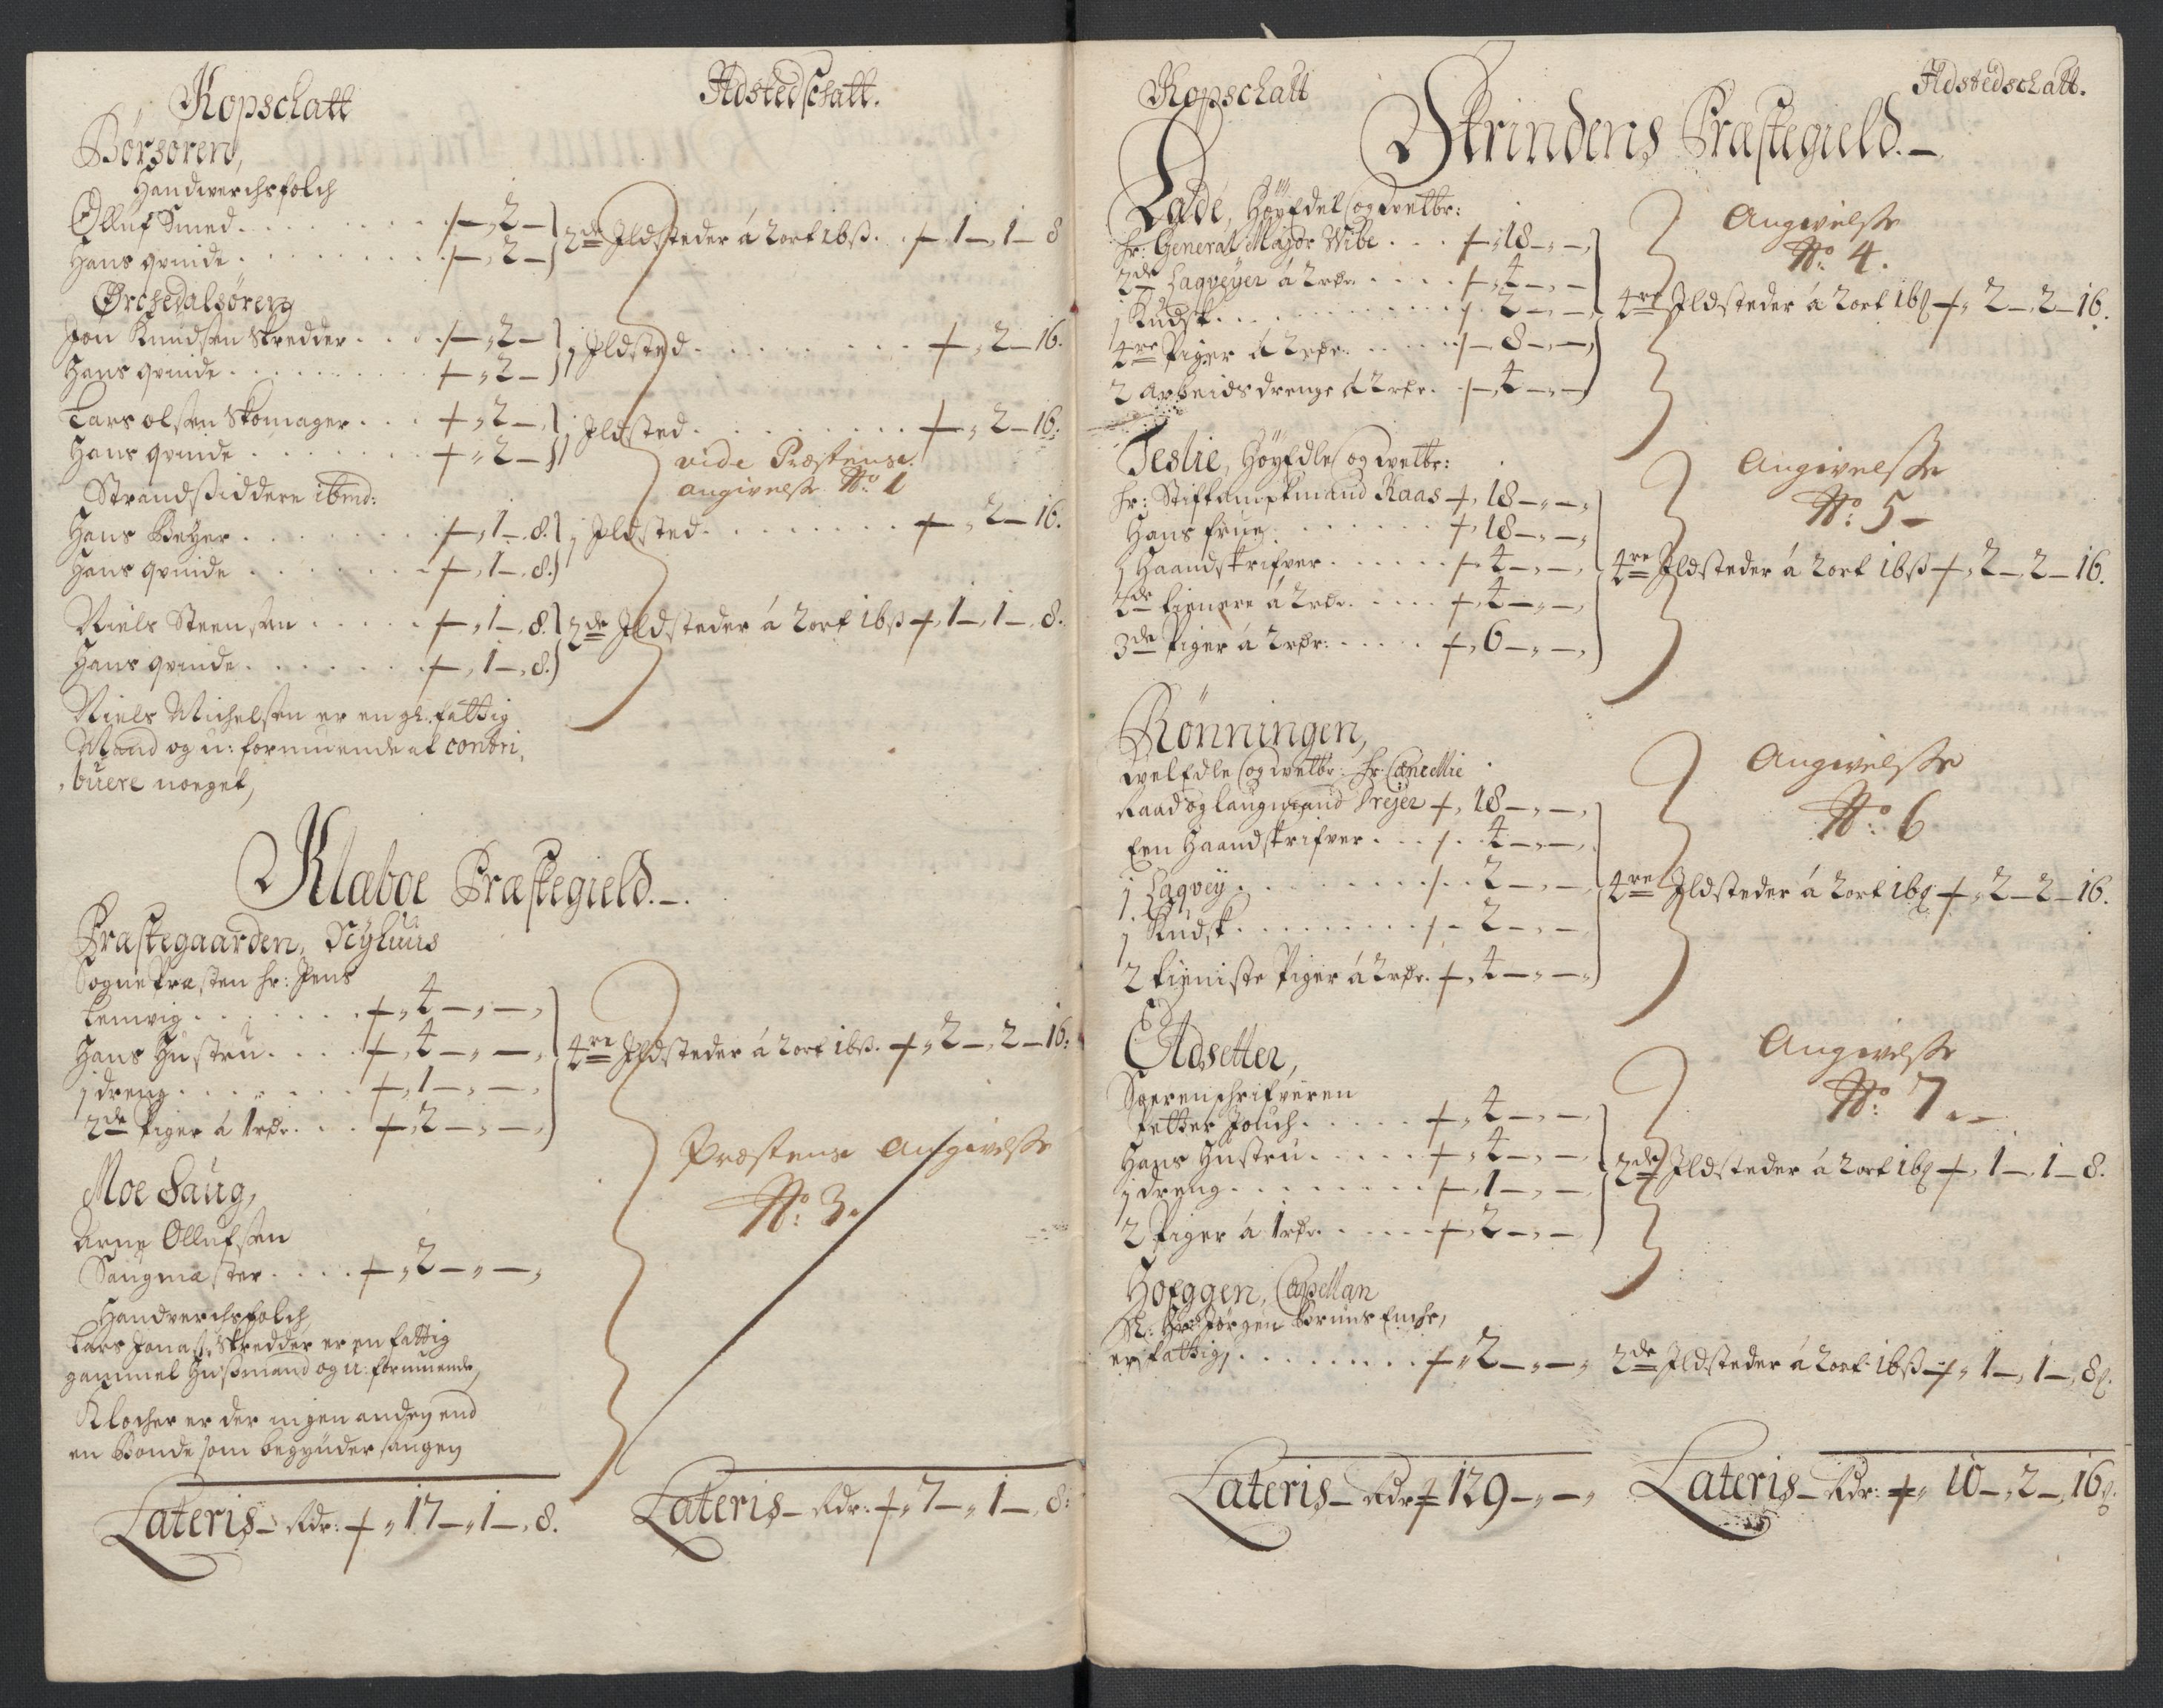 Kopschatt
Ildstedschatt.
Børsøren,
Handwerchsfolch
Olluf Smed . . . . . . . +–„2–
Hans qvinde . . . . . . . +–„2–
2de Ildsteder á 2 ort 16ß . . +„1–„1–8
Orchedalsøren
Jon Knudsen Skredder . . . +–„2–
Hans qvinde . . . . . . . +„2–
1 Ildsted . . . . . . . . +„2–16.
Lars olsen Skomager . . . +„2–
Hans qvinde . . . . . . . +„2–
1 Ildsted . . . . . . . . +„2–16:
vide Præstens
angivelse No: 1
Strandsiddere ibmd:
Hans Beyer . . . . . . . +„1–.8.
Hans qvinde . . . . . . +„1–.8.
1 Ildsted . . . . . . . . +„2–16.
Niels Steensen . . . . . +„1–.8.
Hans qvinde . . . . . . . +„1–.8.
2de Ildsteder á 2 ort 16ß +„1–„1–.8.
Niels Michelsen er en gl. fattig
Mand og u: formuende at contri,
,buere noeget,
Klæboe Præstegield.–.
Præstegaarden, Nyhuus
Sogne Præsten hr: Jens
Lemvig . . . . . . +„4–„–„
Hans Hustru . . . . +„4–„–„
1 dreng . . . . . . +„1–„–„
2de Piger á 1 rdr. . . . +„2–„–„
4re Ildsteder á 2 ort 16ß. +„2–„2–16:
Præstens Angivelse
No: 3.
Moe Saug,
Arne Ollufsen
Saugmæster . . . . +„2–„–„
Handverchsfolch
Lars Jonas: Skredder er en fattig
gammel Husmand og u: formuende,
Klocher er der ingen anden end
en Bonde som begynder sangen
Lateris– Rdr: +„17–„1–„8.
Lateris– Rdr: +„7–„1–„8:
Kopschatt
Ildstedschatt.
Strindens Præstegield.–
Lade, HøyEdel og welbr:
hr: General Major Wibe . . . +„18–„–„
2de Laqveyer á 2 rdr. . . . +„4–„–
1 Kudsk . . . . . . . . +„2–„–
4re Piger á 2 rdr. . . . . +–8–„–„
2 Arbeids drenge á 2 rdr. +„4–„–
Angivelse
No: 4.
4re Ildsteder á 2 ort 16ß +„2–„2–16.
Leslie, HøyEdle og welbr:
hr: Stiftamptmand Kaas +„18–„–„
Hans frue . . . . . . . +„18–„–„
1 Haandskrifver . . . . . +„4–„–„
2de tienere á 2 rdr. . . . . +„4–„–„
3de Piger á 2 rdr: . . . . . +„6–„–„
Angivelse
No: 5–
4re Ildsteder á 2 ort 16ß +„2–„2–16.
Rønningen,
welEdle og welbr: hr: Cancellie
Raad og laugmand Dreyer +„18–„–„
Een Haandskrifver . . . +„4–„–„
1 Laqvey . . . . . . . +„2–„–
1 Kudsk . . . . . . . . +„2–„–
2 tieniste Piger á 2 rdr. +„4–„–„
Angivelse
No: 6
4re Ildsteder á 2 ort 16ß +„2–2–16.
Adsetter,
Soerenschrifveren
Petter Jouch . . . . . . +„4–„–
Hans Hustru . . . . . +„4–„–
1 dreng . . . . . . . . +„1–„–
2 Piger á 1 rdr. . . . . . +„2–„–
Angivelse
No: 7.–
2de Ildsteder á 2 ort 16ß +„1–„1–8.
Hoeggen, Capellan
Sl: Hr: Jørgen Brums Enche,
er fattig, . . . . . . . . +„2–„–„
2de Ildsteder á 2 ort 16ß +„1–„1–„8ß.
Lateris– Rdr + 129–„–„
Lateris– Rdr: +„10–„2–„16ß.